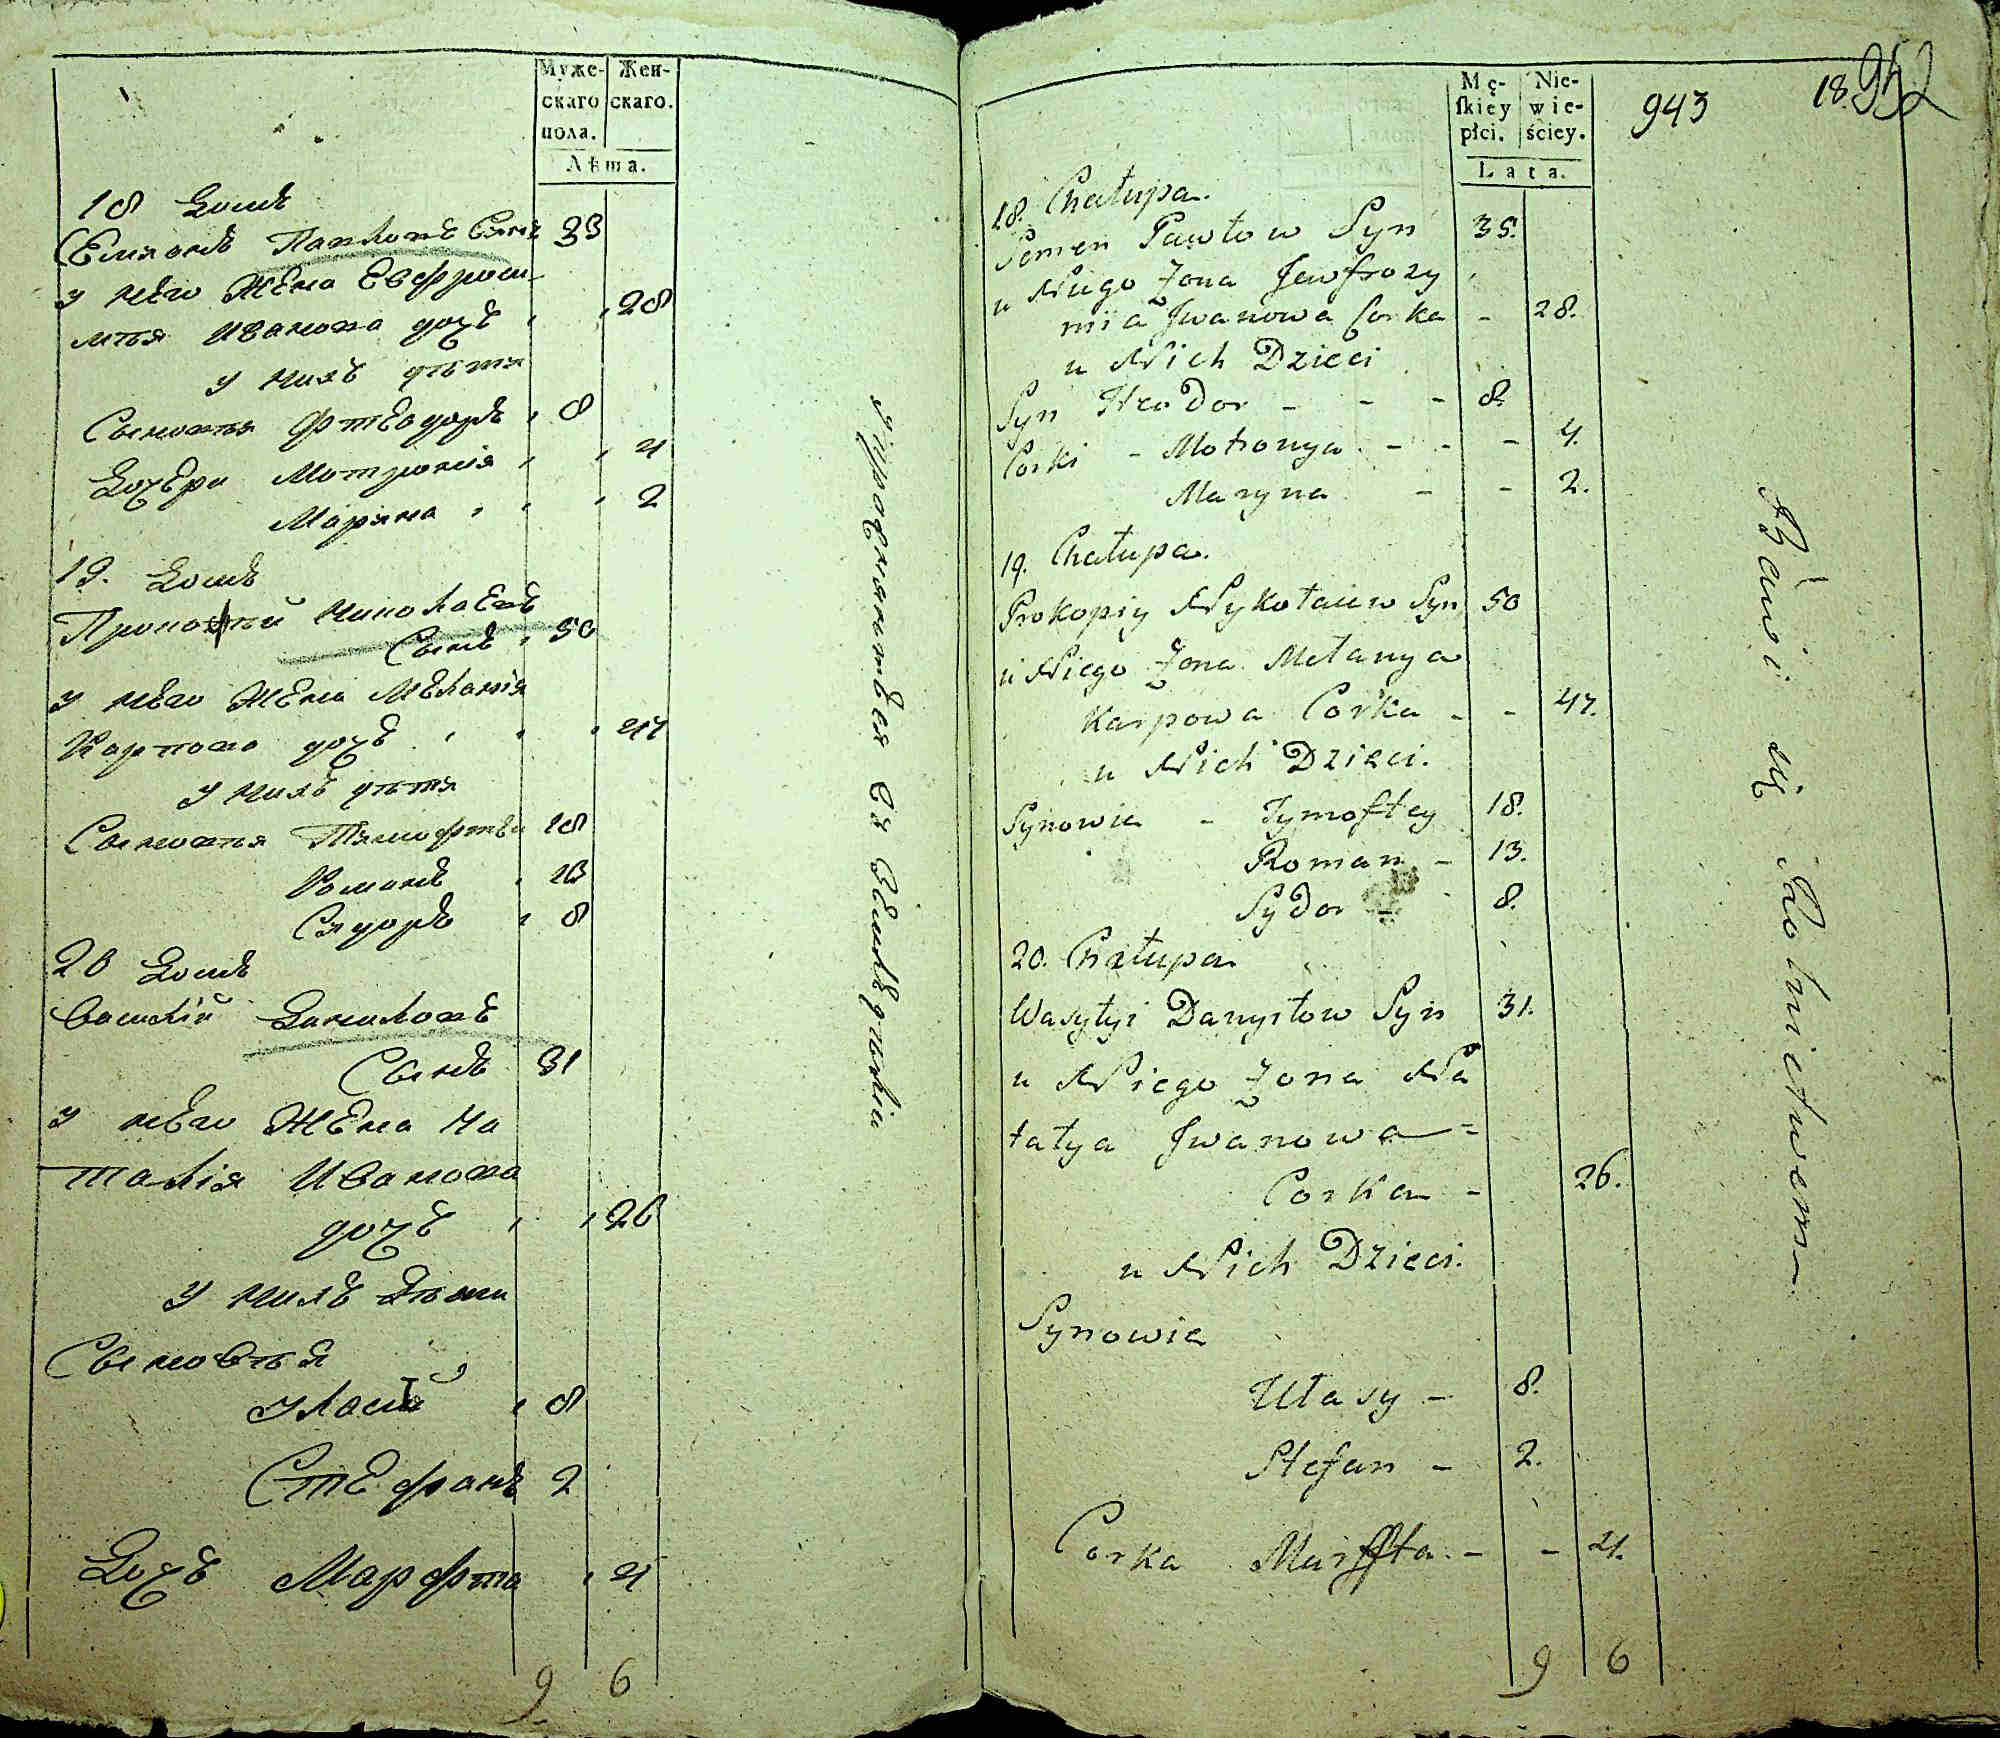 Муже-
скаго
пола.
Жен-
скаго.
Лѣта.
18 Домъ
Семионъ Павловъ Сынъ 33
у него Жена Евфроси-
мія Иванова дочь 28
у нихъ дѣти
Сыновья Фтеодоръ 8
Дочери Мотронія 4
Марина 2
19. Домъ
Прокопій Николаевъ
Сынъ 50
у него Жена Меланія
Карпова дочь 47
у нихъ дѣти
Сыновья Тимофтей 18
Романъ 13
Сидоръ 8
20 Домъ
Василій Даниловъ
Сынъ 31
у него Жена На
талія Иванова
дочь 26
у нихъ Дѣти
Сыновья
Уласій 8
Стефанъ 2
Дочь Марфта 4
9. 6
Упражняются въ Земледѣліи
Mę-
skiey
płci.
Nie-
wie-
ściey.
Lata.
943
18.
952
18. Chałupa.
Semen Pawłow Syn 35.
u Niego Żona Jewfrozy
mia Jwanowa Corka - 28.
u Nich Dzieci
Syn Fteodor - - - 8.
Corki - Motronya - - - 4.
Maryna - - 2.
19. Chałupa.
Prokopiy Nykołaiew Syn 50
u Niego Żona Mełanya
Karpowa Corka - - 47.
u Nich Dzieci.
Synowie - Tymoftey 18.
Roman - 13.
Sydor - 8.
20. Chałupa
Wasyłyi Danyłow Syn 31.
u Niego Żona Na
tałya Jwanowa -
Corka - 26.
u Nich Dzieci.
Synowie
Ułasy - 8.
Stefan - 2.
Corka Marffta. - - 4.
9 6
Bawi się Rolnictwem